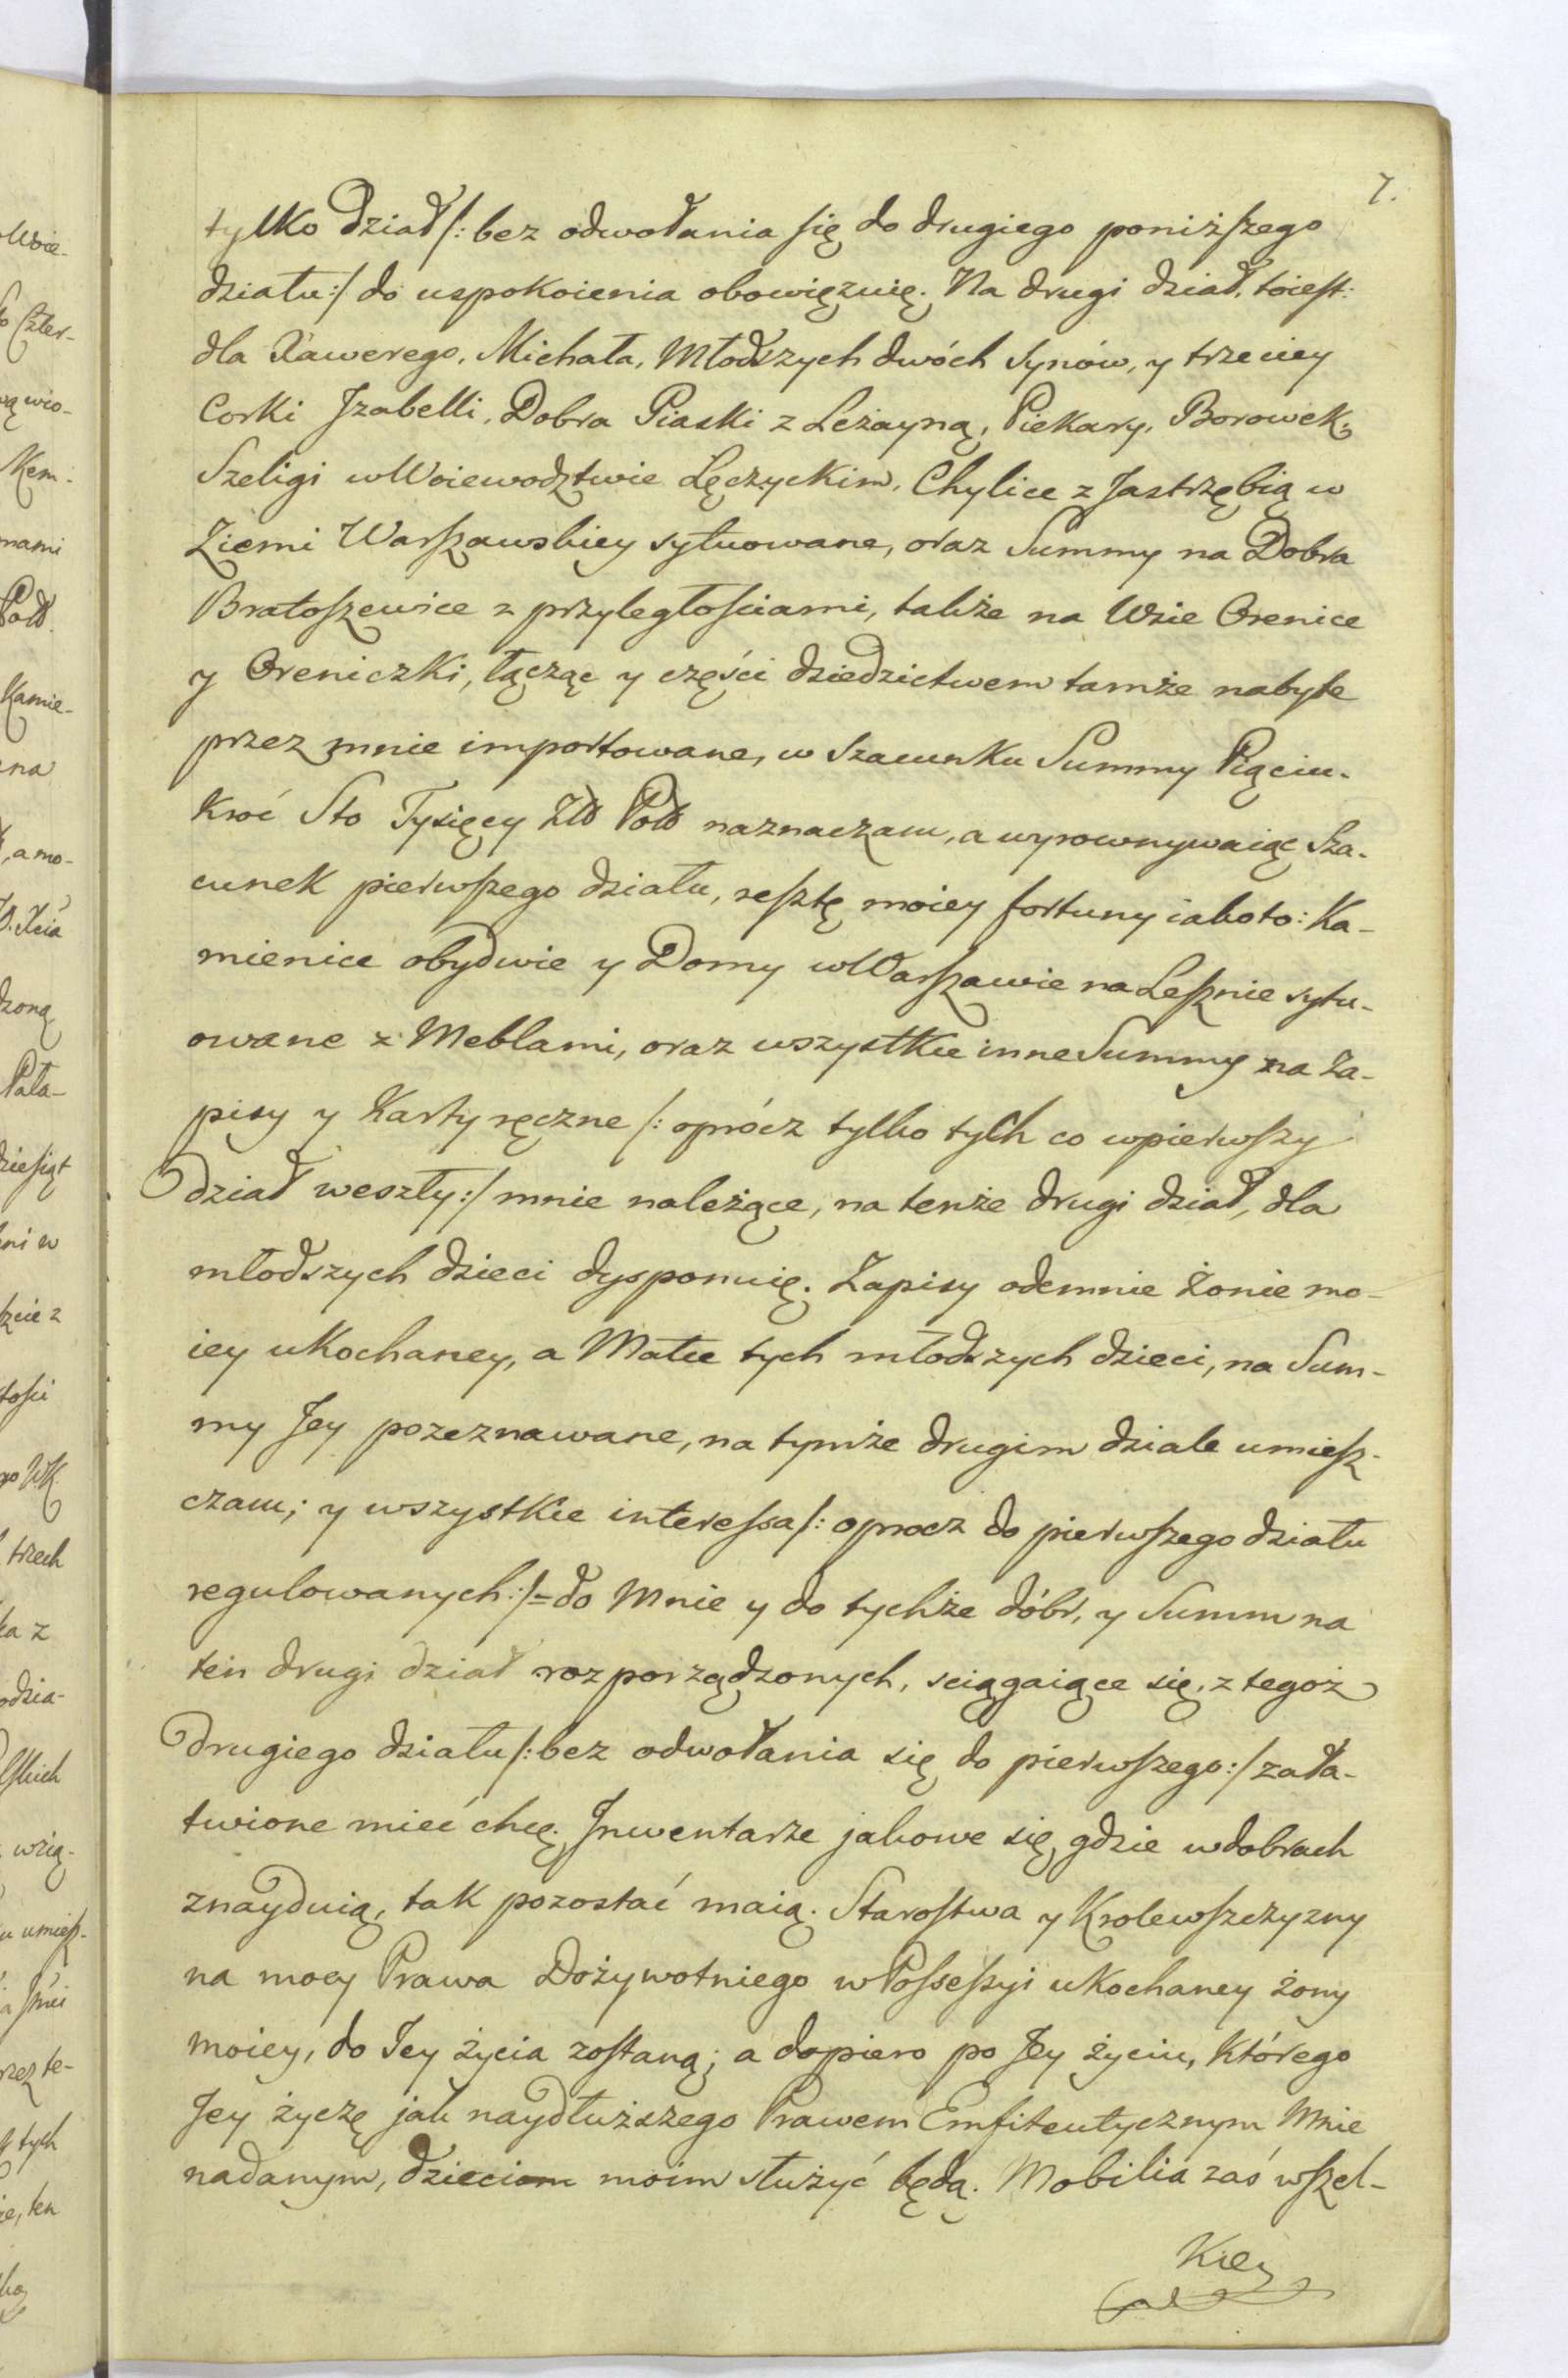 7.
tylko Dział /: bez odwołania się do drugiego poniższego
działu :/ do uspokoienia obowięzuię. Na drugi dział, toiest:
dla Xawerego, Michała, Młodszych dwóch synów, y trzeciey
Corki Jzabelli, Dobra Piaski z Leżayną, Piekary, Borowek,
Szeligi w Woiewodztwie Łęczyckim, Chylice z Jastrzębią w
Ziemi Warszawskiey sytuowane, oraz Summy na Dobra
Bratoszewice z przyległościami, także na Wsie Orenice
y Oreniczki, łącząc y części dziedzictwem tamże nabyte
przez mnie importowane, w szacunku Summy Pięciu-
kroć Sto Tysięcy Złł Poll naznaczam, a wyrownywaiąc sza-
cunek pierwszego działu, resztę moiey fortuny iakoto: Ka-
mienice obydwie y Domy w Warszawie na Lesznie sytu-
owane z Meblami, oraz wszystkie inne Summy na Za-
pisy y Karty ręczne /: oprócz tylko tych co w pierwszy
dział weszły :/ mnie należące, na tenże drugi dział, dla
młodszych dzieci dysponuię. Zapisy odemnie Żonie mo-
iey ukochaney, a Matce tych młodszych dzieci, na Sum-
my Jey pozeznawane, na tymże drugim dziale umiesz-
czam; y wszystkie interessa /: oprocz do pierwszego działu
regulowanych :/= do Mnie y do tychże dóbr, y Summ na
ten drugi dział rozporządzonych, sciągaiące się, z tegoż
drugiego działu /: bez odwołania się do pierwszego :/ zała-
twione mieć chcę. Jnwentarze jakowe się gdzie w dobrach
znayduią, tak pozostać maią. Starostwa y Krolewszczyzny
na mocy Prawa Dożywotniego w Possessyi ukochaney żony
moiey, do Jey życia zostaną; a dopiero po Jey życiu, którego
Jey życzę jak naydłuższego Prawem Emfiteutycznym Mnie
nadanym, dzieciom moim służyć będą. Mobilia zaś wszel-
kie